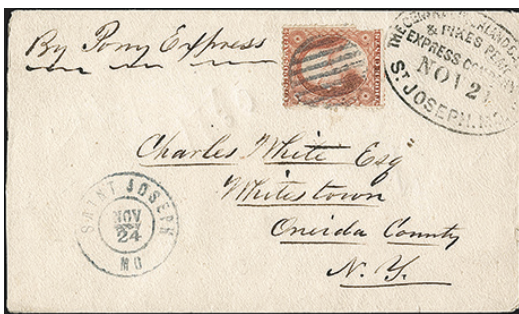 By Pony Express
THE CENTRAL OVERLAND CALIFORNIA
& PIKES PEAK
EXPRESS COMPANY
NOV 21
ST. JOSEPH, MO.
Charles White Esq
Whitestown
Oneida County
N. Y.
SAINT JOSEPH
NOV
24
MO